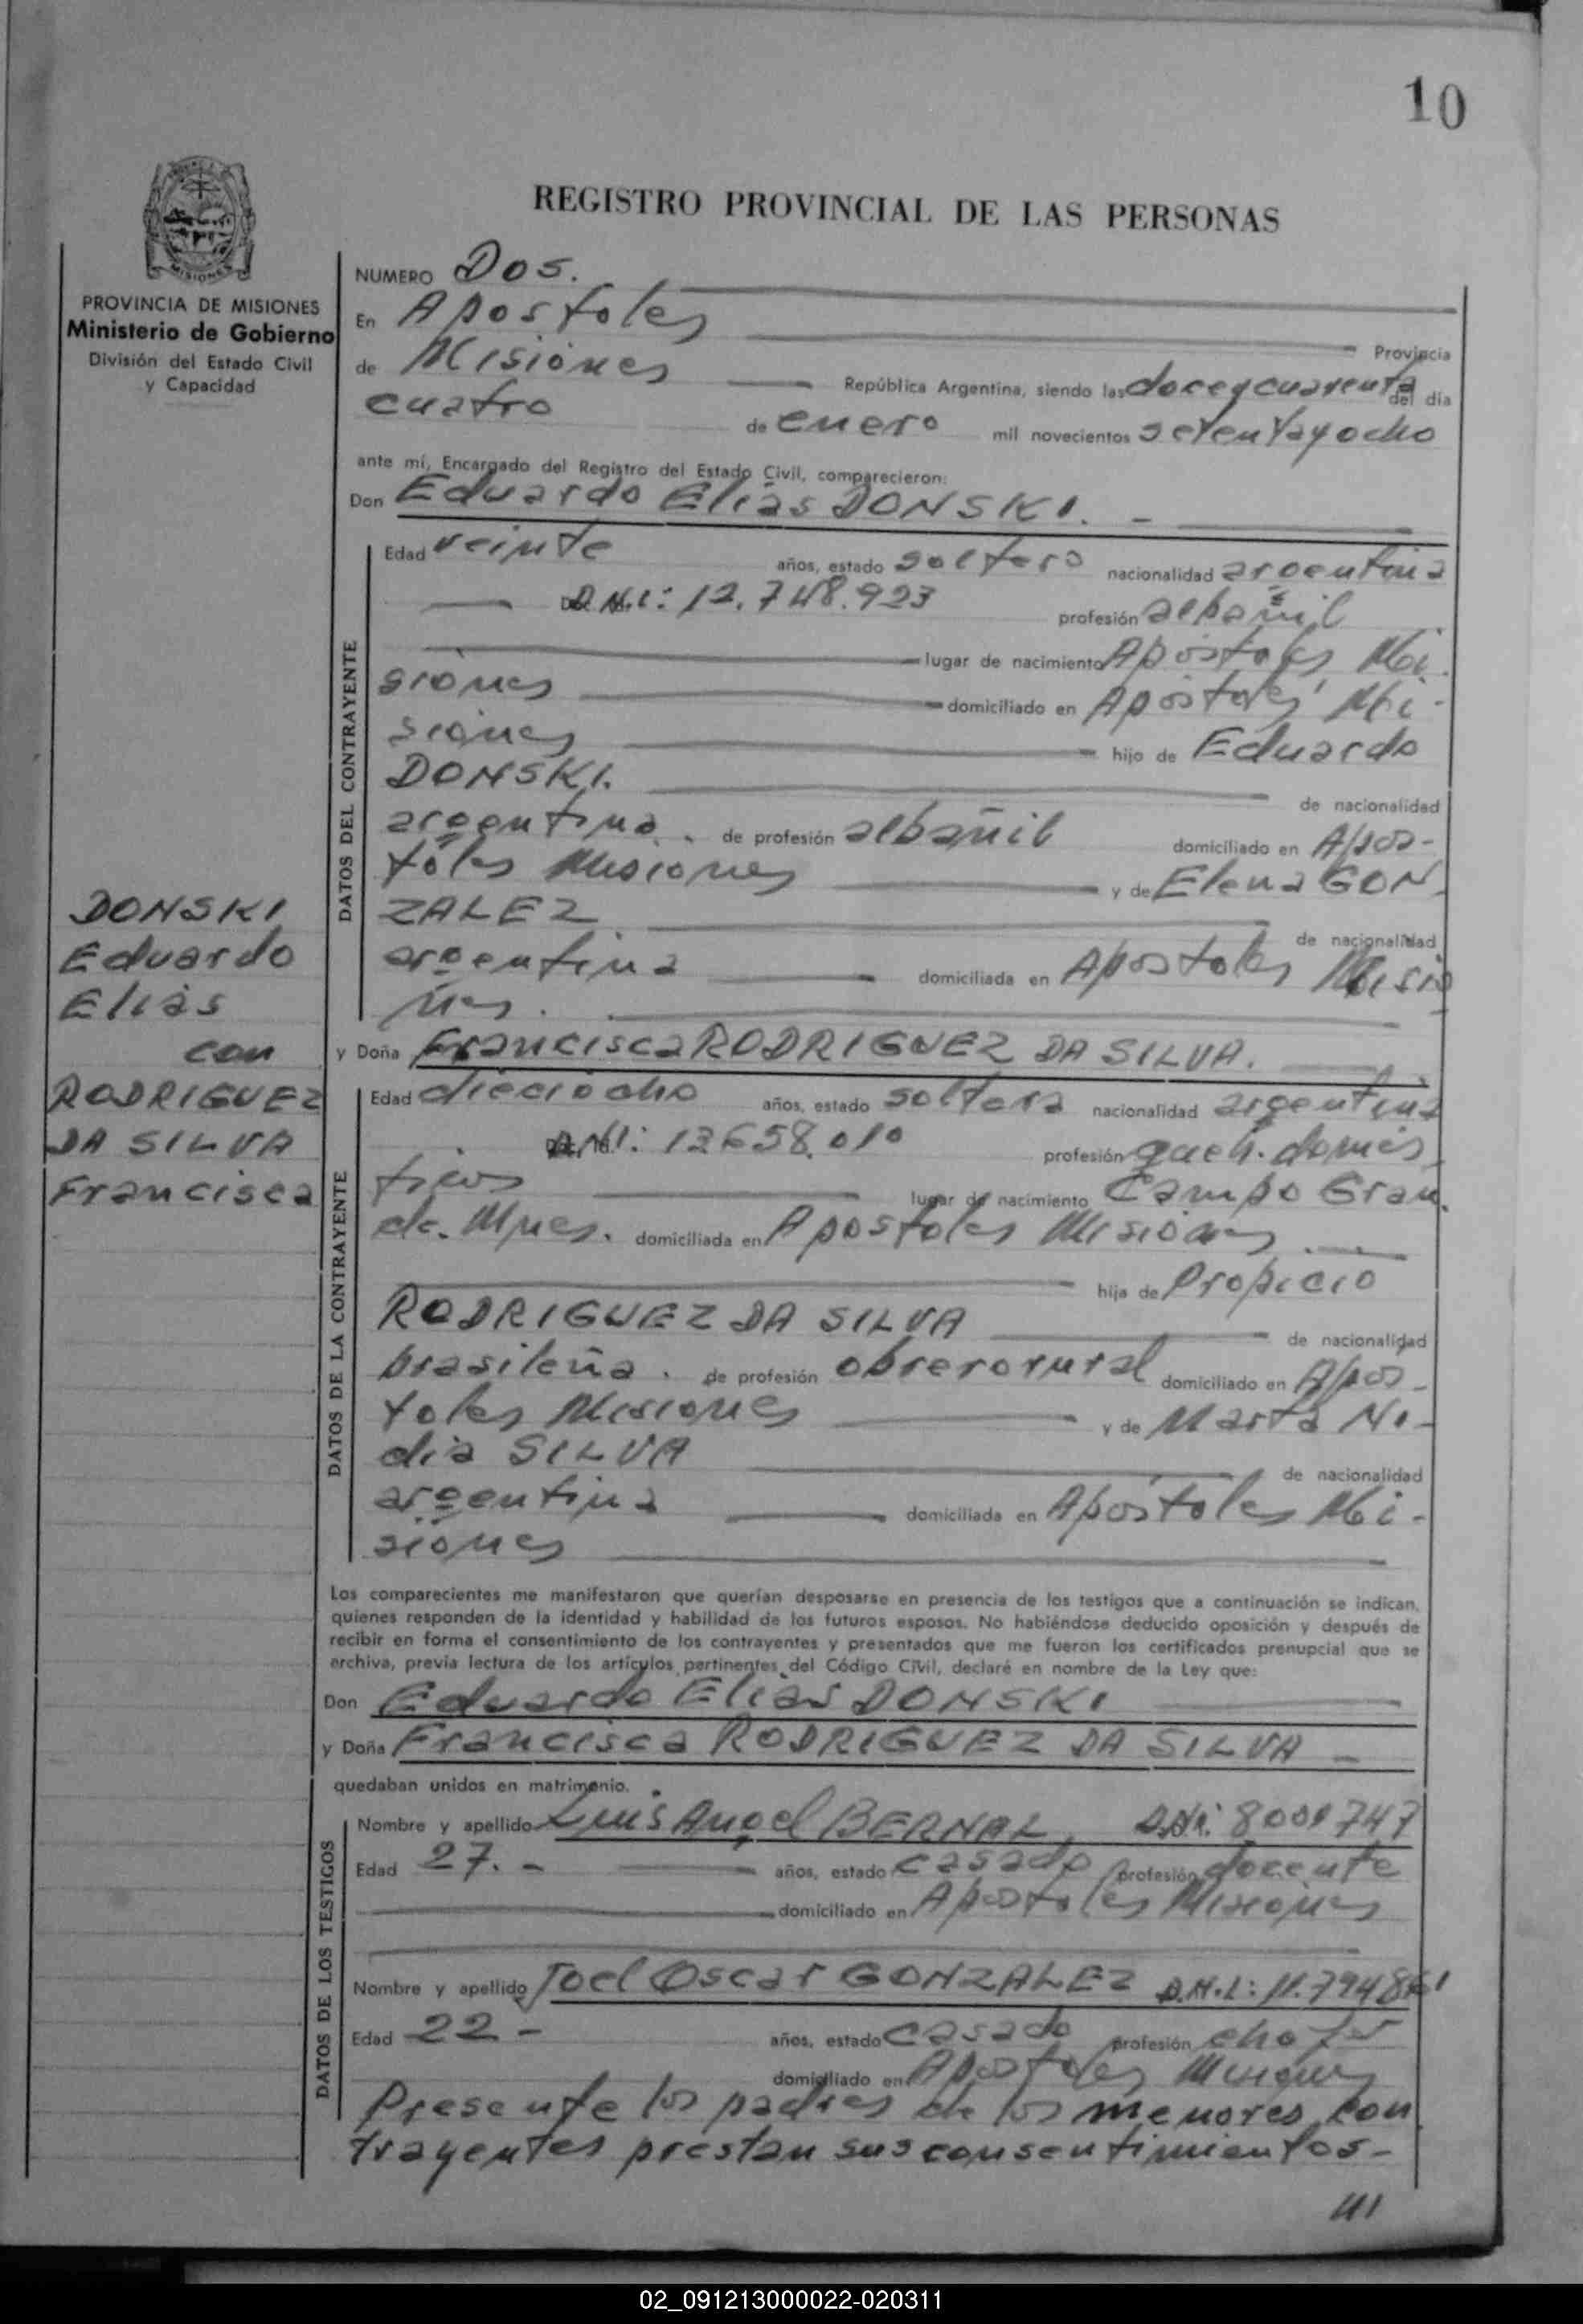 10
REGISTRO PROVINCIAL DE LAS PERSONAS
MISIONES
PROVINCIA DE MISIONES
Ministerio de Gobierno
División del Estado Civil
y Capacidad
NUMERO Dos.
En Apostoles
Provincia
de Misiones República Argentina, siendo las doce y cuarenta del día
cuatro de enero mil novecientos setenta y ocho
ante mí, Encargado del Registro del Estado Civil, comparecieron:
Don Eduardo Elias DONSKI. -
DATOS DEL CONTRAYENTE
Edad veinte años, estado soltero nacionalidad argentina
D.N.I: 12.748.923 profesión albañil
lugar de nacimiento Apóstoles, Mi-
siones domiciliado en Apóstoles, Mi-
siones hijo de Eduardo
DONSKI.
de nacionalidad
argentina. de profesión albañil domiciliado en Apos-
toles Misiones y de Elena GON
ZALEZ
de nacionalidad
argentina domiciliada en Apostoles Misio
nes.
DONSKI
Eduardo
Elias
con
RODRIGUEZ
DA SILVA
Francisca
y Doña Francisca RODRIGUEZ DA SILVA.
DATOS DE LA CONTRAYENTE
Edad dieciocho años, estado soltera nacionalidad argentina
D.N.I: 13658.010 profesión queh. domés
ticos lugar de nacimiento Campo Gran
de. Mnes. domiciliada en Apostoles Misiones
hija de Propicio
RODRIGUEZ DA SILVA de nacionalidad
brasileña. de profesión obrero rural domiciliado en Apos-
toles Misiones y de Marta Ni-
dia SILVA
de nacionalidad
argentina domiciliada en Apóstoles Mi-
siones
Los comparecientes me manifestaron que querían desposarse en presencia de los testigos que a continuación se indican,
quienes responden de la identidad y habilidad de los futuros esposos. No habiéndose deducido oposición y después de
recibir en forma el consentimiento de los contrayentes y presentados que me fueron los certificados prenupcial que se
archiva, previa lectura de los artículos pertinentes del Código Civil, declaré en nombre de la Ley que:
Don Eduardo Elias DONSKI
y Doña Francisca RODRIGUEZ DA SILVA -
quedaban unidos en matrimonio.
DATOS DE LOS TESTIGOS
Nombre y apellido Luis Angel BERNAL, D.N.I. 8001747
Edad 27. - años, estado casado profesión docente
domiciliado en Apostoles Misiones
Nombre y apellido Joel Oscar GONZALEZ D.N.I: 11.794861
Edad 22 - años, estado casado profesión chofer
domiciliado en Apostoles Misiones
Presente los padres de los menores con
trayentes prestan sus consentimientos-
///
02_091213000022-020311